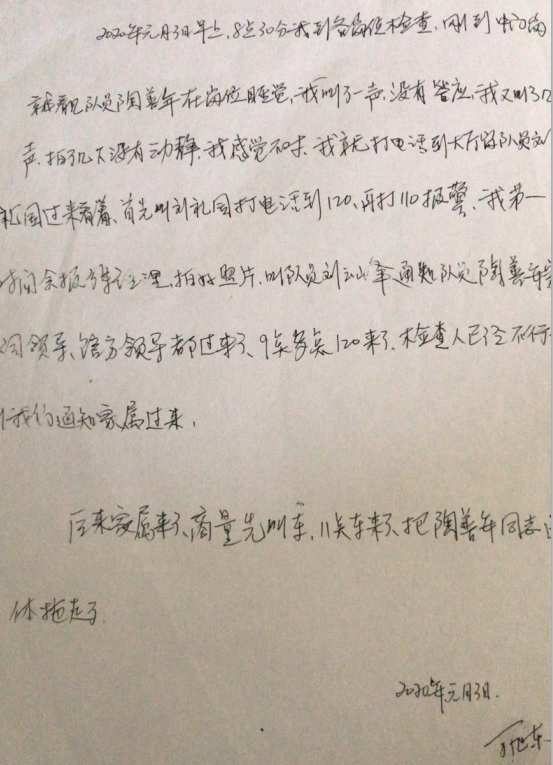 2020年元月3日早上,8点30分我到各岗位检查,刚到中门岗
就看见队员陶善年在岗位睡觉,我叫了一声,没有答应,我又叫了几
声,拍了几下没有动静,我感觉不对,我就打电话到大厅好队员刘
礼国过来看看,首先叫刘礼国打电话到120,再打110报警,我第一
时间,拍好照片,叫队员刘通知队员陶善年家
司领导、馆方领导都过来了、9点多点120来了,检查人已经不行
我们通知家属过来,
后来家属来了,商量先叫车,11点车来了,把陶善年同志
体拖走了
2020年元月3日.